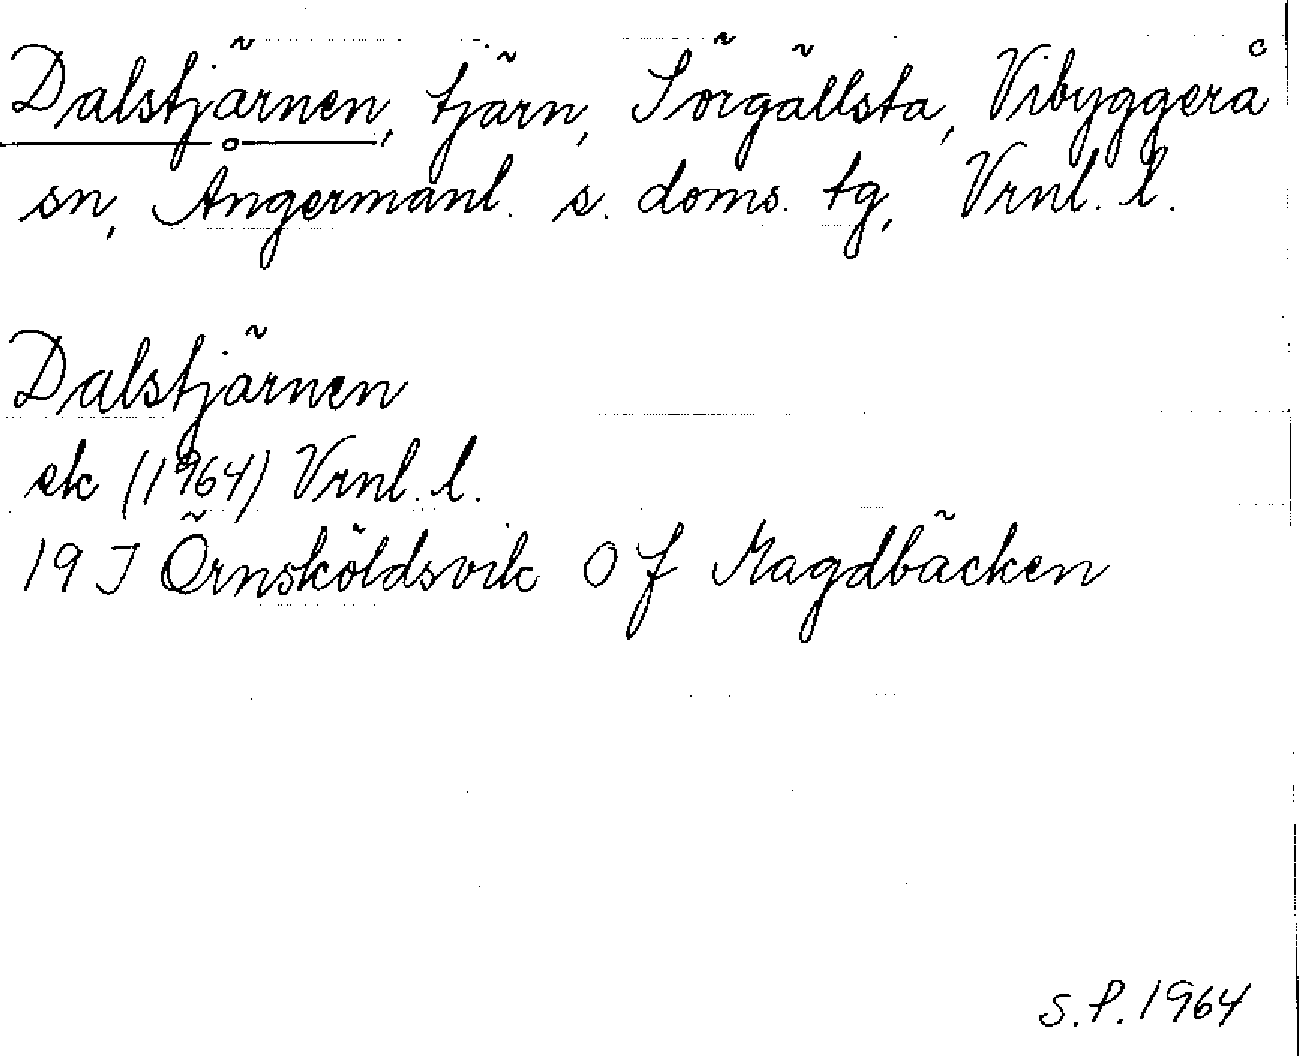 Dalstjärnen, tjärn, Sörgällsta, Vibyggerå
sn, Ångermanl. s. doms. tg, Vrnl. l.
Dalstjärnen
ek (1964) Vrnl. l.
19 J Örnsköldsvik 0 f Magdbäcken
S.P. 1964